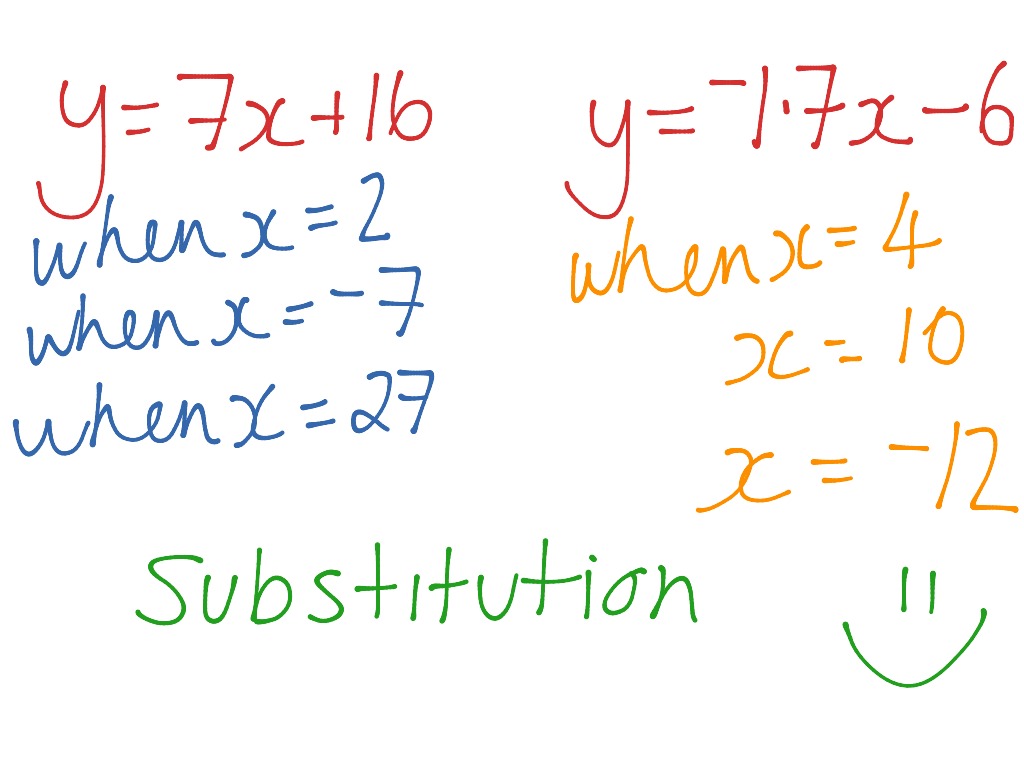 y=7x+16
when x=2
when x=-7
when x=27
y=-1.7x-6
when x=4
x=10
x=-12
Substitution